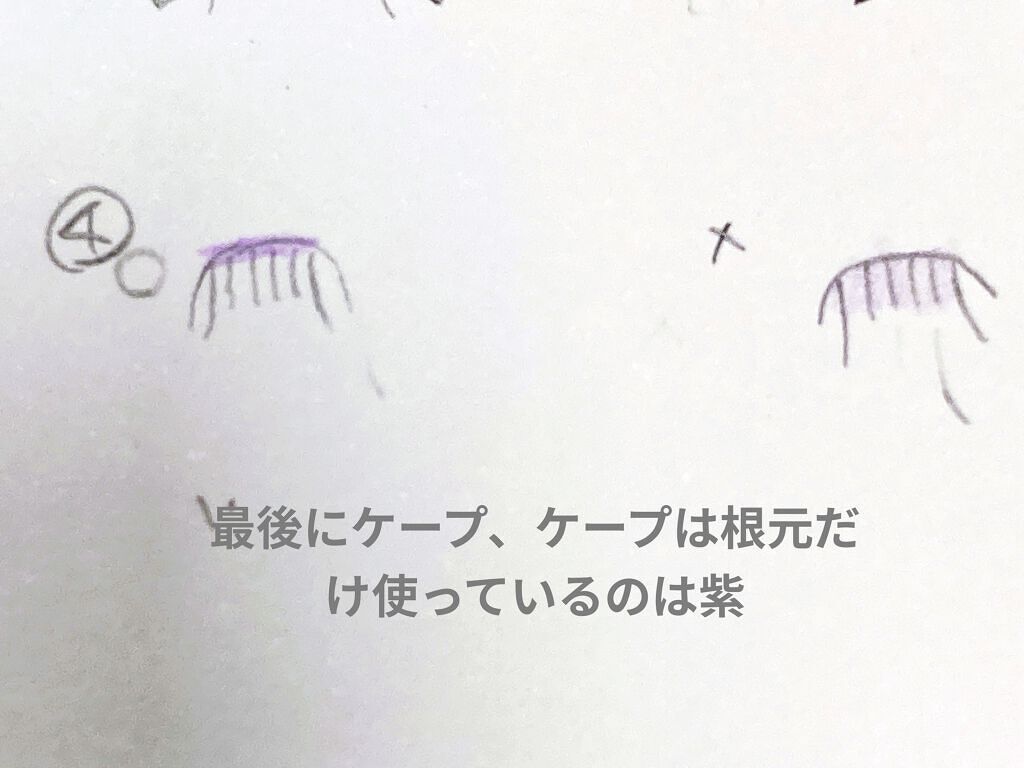 ④
○ ×
最後にケープ、ケープは根元だ
け使っているのは紫